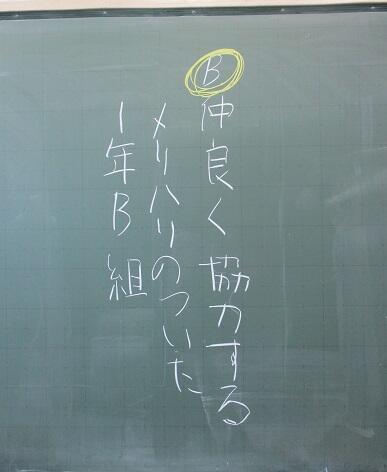 B
仲良く協力する
メリハリのついた
1年B組